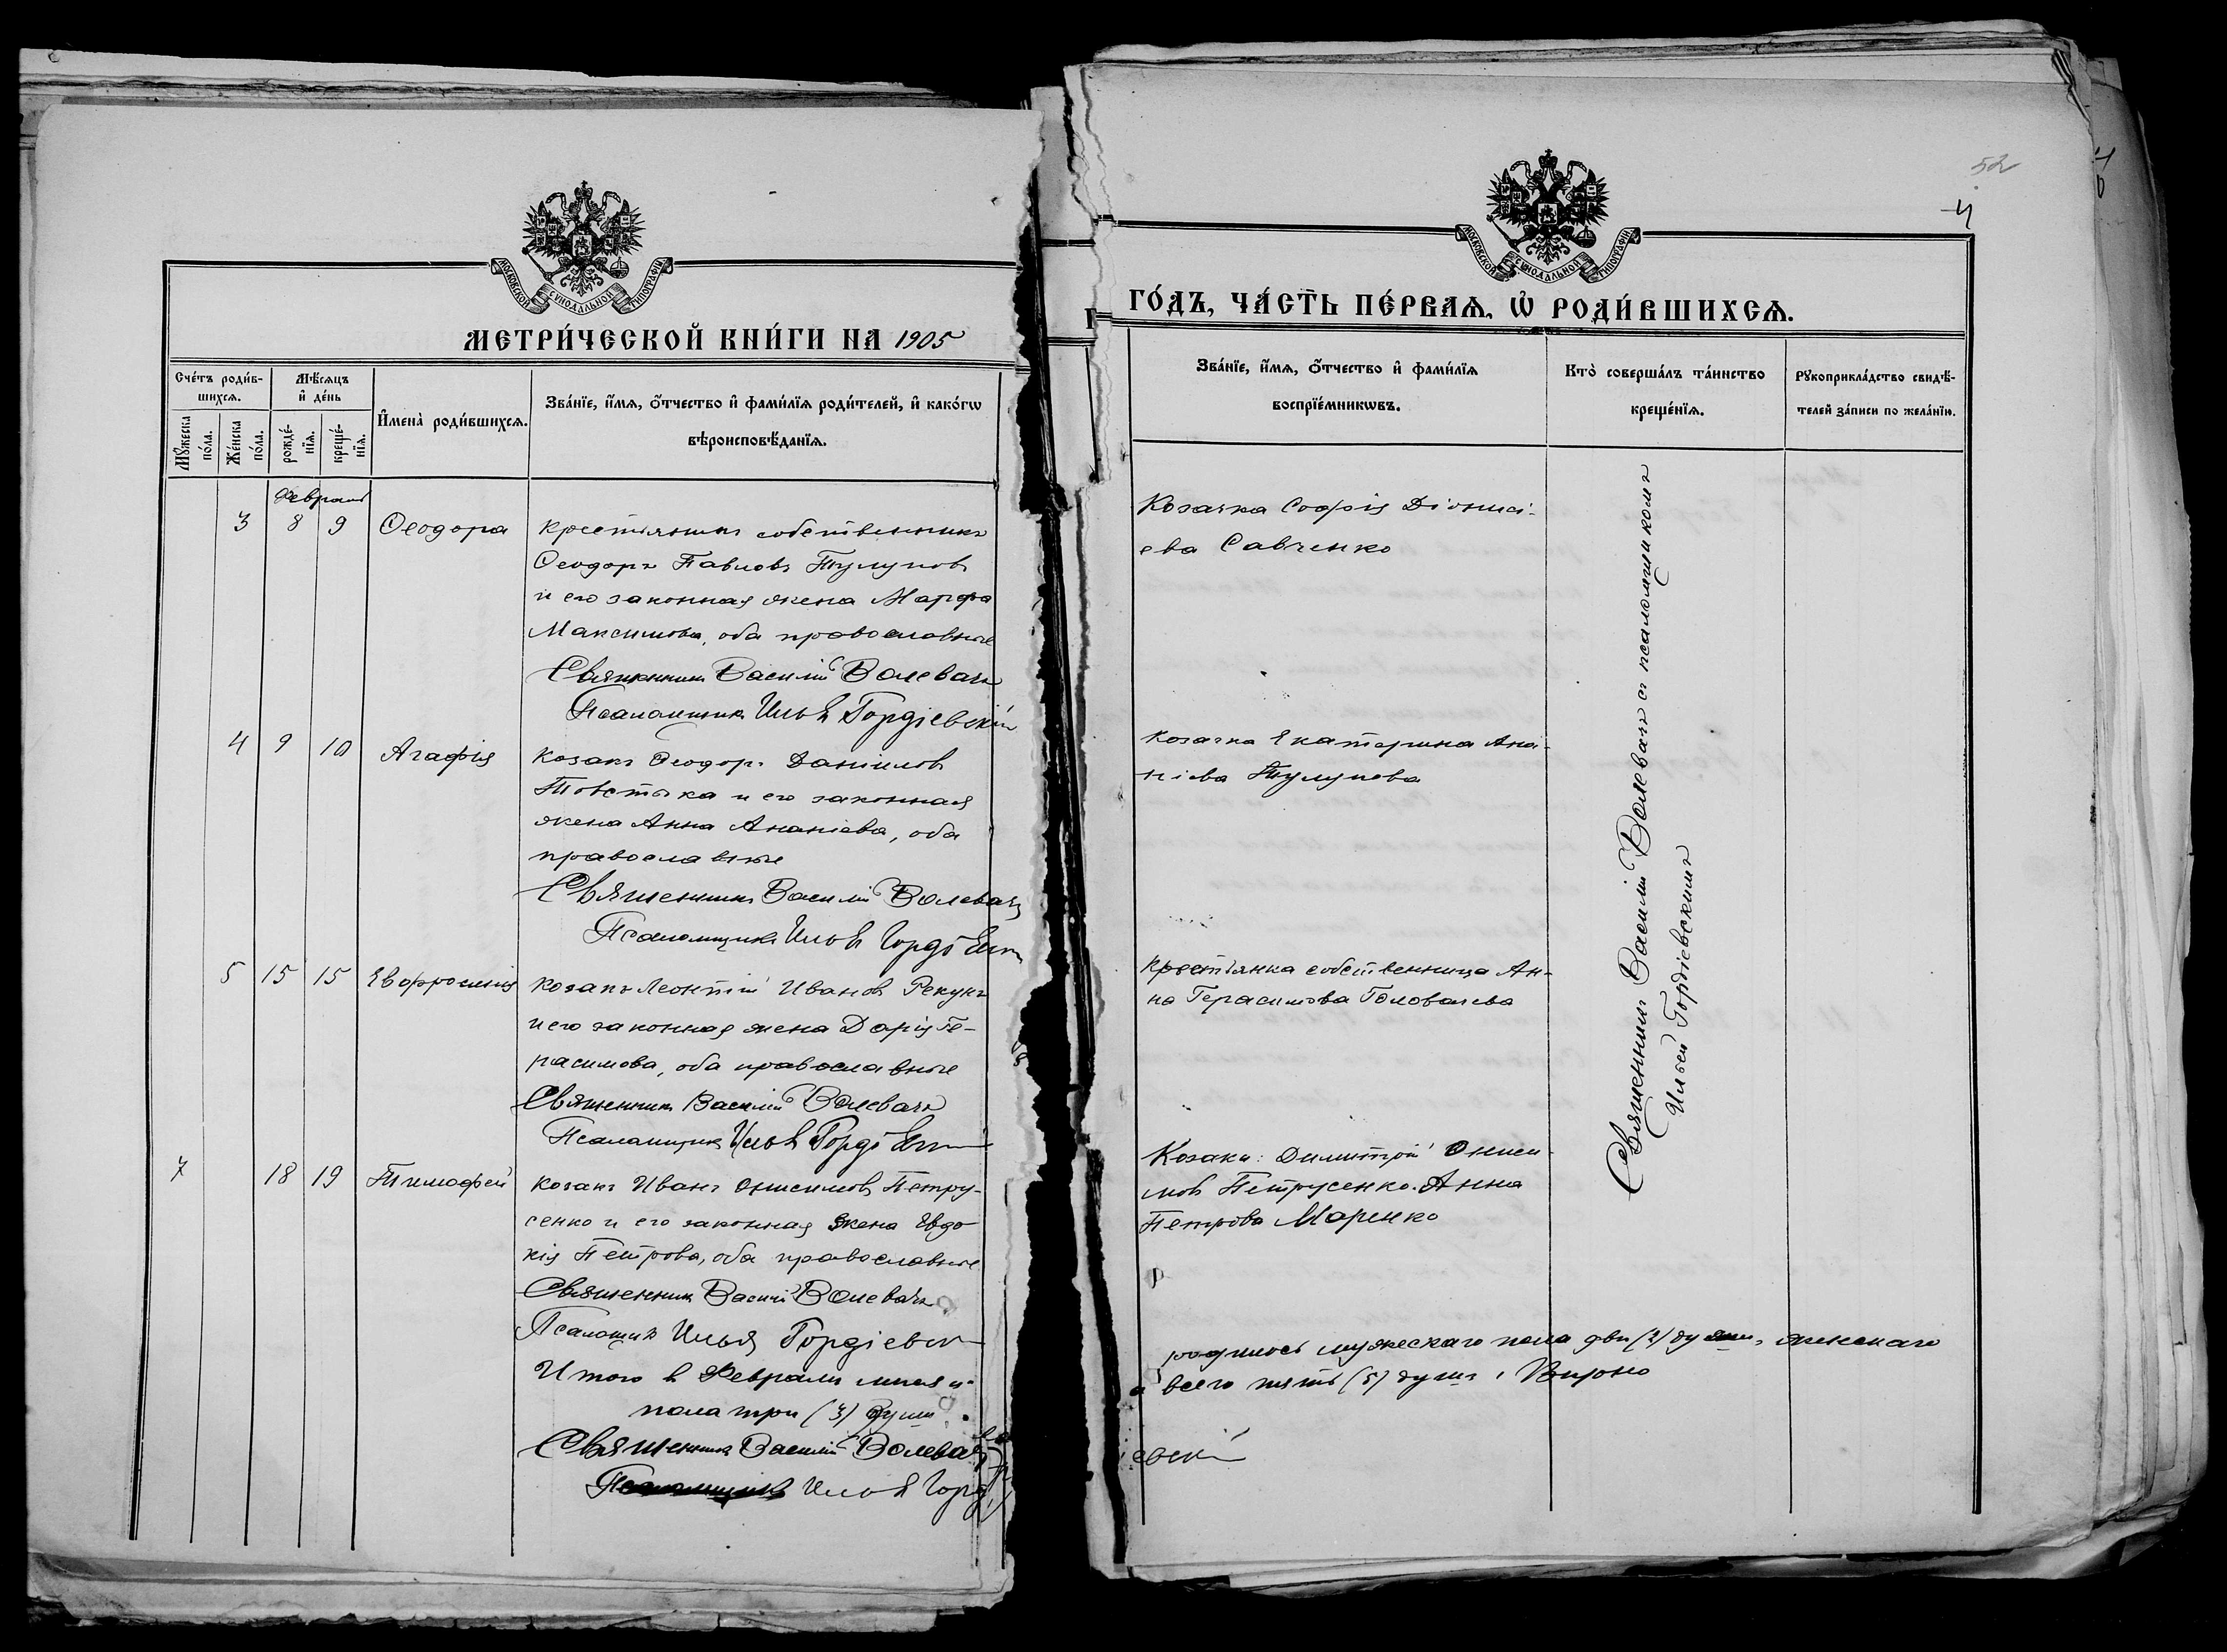 МОСКОВСКОЙ СѴНОДАЛЬНОЙ ТИПОГРАФІИ
МЕТРИ́ЧЕСКОЙ КНИ́ГИ НА 1905
Сче́тъ роди́в-
шихсѧ.
Мꙋ́жеска
по́ла.
Же́нска
по́ла.
Мѣ́сѧцъ
и҆ де́нь
рожде́-
нїѧ.
креще́-
нїѧ.
И҆мена̀ роди́вшихсѧ.
Зва́нїе, и҆́мѧ, ѻ҆́тчество и҆ фами́лїѧ роди́телей, и҆ како́гѡ
вѣроисповѣ́данїѧ.
Февраль
3 8 9 Ѳеодора
крестьянинъ собственникъ
Ѳеодоръ Павловъ Тулуповъ
и его законная жена Марфа
Максимова, оба православные
Священникъ Василій Волевачъ
Псаломщикъ Илья Гордіевскій
4 9 10 Агафія
козакъ Ѳеодоръ Даніиловъ
Товстыка и его законная
жена Анна Ананіева, оба
православные
Священникъ Василій Волевачъ
Псаломщикъ Илья
5 15 15 Евфросинія
козакъ Леонтій Ивановъ Рекунъ
и его законная жена Дарія Ге-
расимова, оба православные
Священникъ Василій Волевачъ
Псаломщикъ Илья
7 18 19 Тимофей
козакъ Иванъ Онисимовъ Петру-
сенко и его законная жена Евдо-
кія Петрова, оба православные
Священникъ Василій Волевачъ
Илья Гордіевск
Итого в Февралѣ мѣсяцѣ
пола три (3) души
Священникъ Василій Волевачъ
Псаломщикъ Илья Горді
52
4
МОСКОВСКОЙ СѴНОДАЛЬНОЙ ТИПОГРАФІИ
ГО́ДЪ, ЧА́СТЬ ПЕ́РВАѦ, Ѽ РОДИ́ВШИХСѦ.
Зва́нїе, и҆́мѧ, ѻ҆́тчество и҆ фами́лїѧ
воспрїе́мникѡвъ.
Кто̀ соверша́лъ та́инство
креще́нїѧ.
Рꙋкоприкла́дство свидѣ́-
телей за́писи по жела́нїю.
Козачка Софія Діонисі-
ева Савченко
козачка Екатерина Ана-
ніева Тулупова
крестьянка собственница Ан-
на Герасимова Головачева
Козаки: Димитрій Ониси-
мовъ Петрусенко. Анна
Петрова Маренко
Священникъ Василій Волевачъ съ псаломщикомъ
Ильей Гордіевскимъ
родилось мужескаго пола двѣ (2) души, женскаго
а всего пять (5) душъ. Вѣрно
евскій